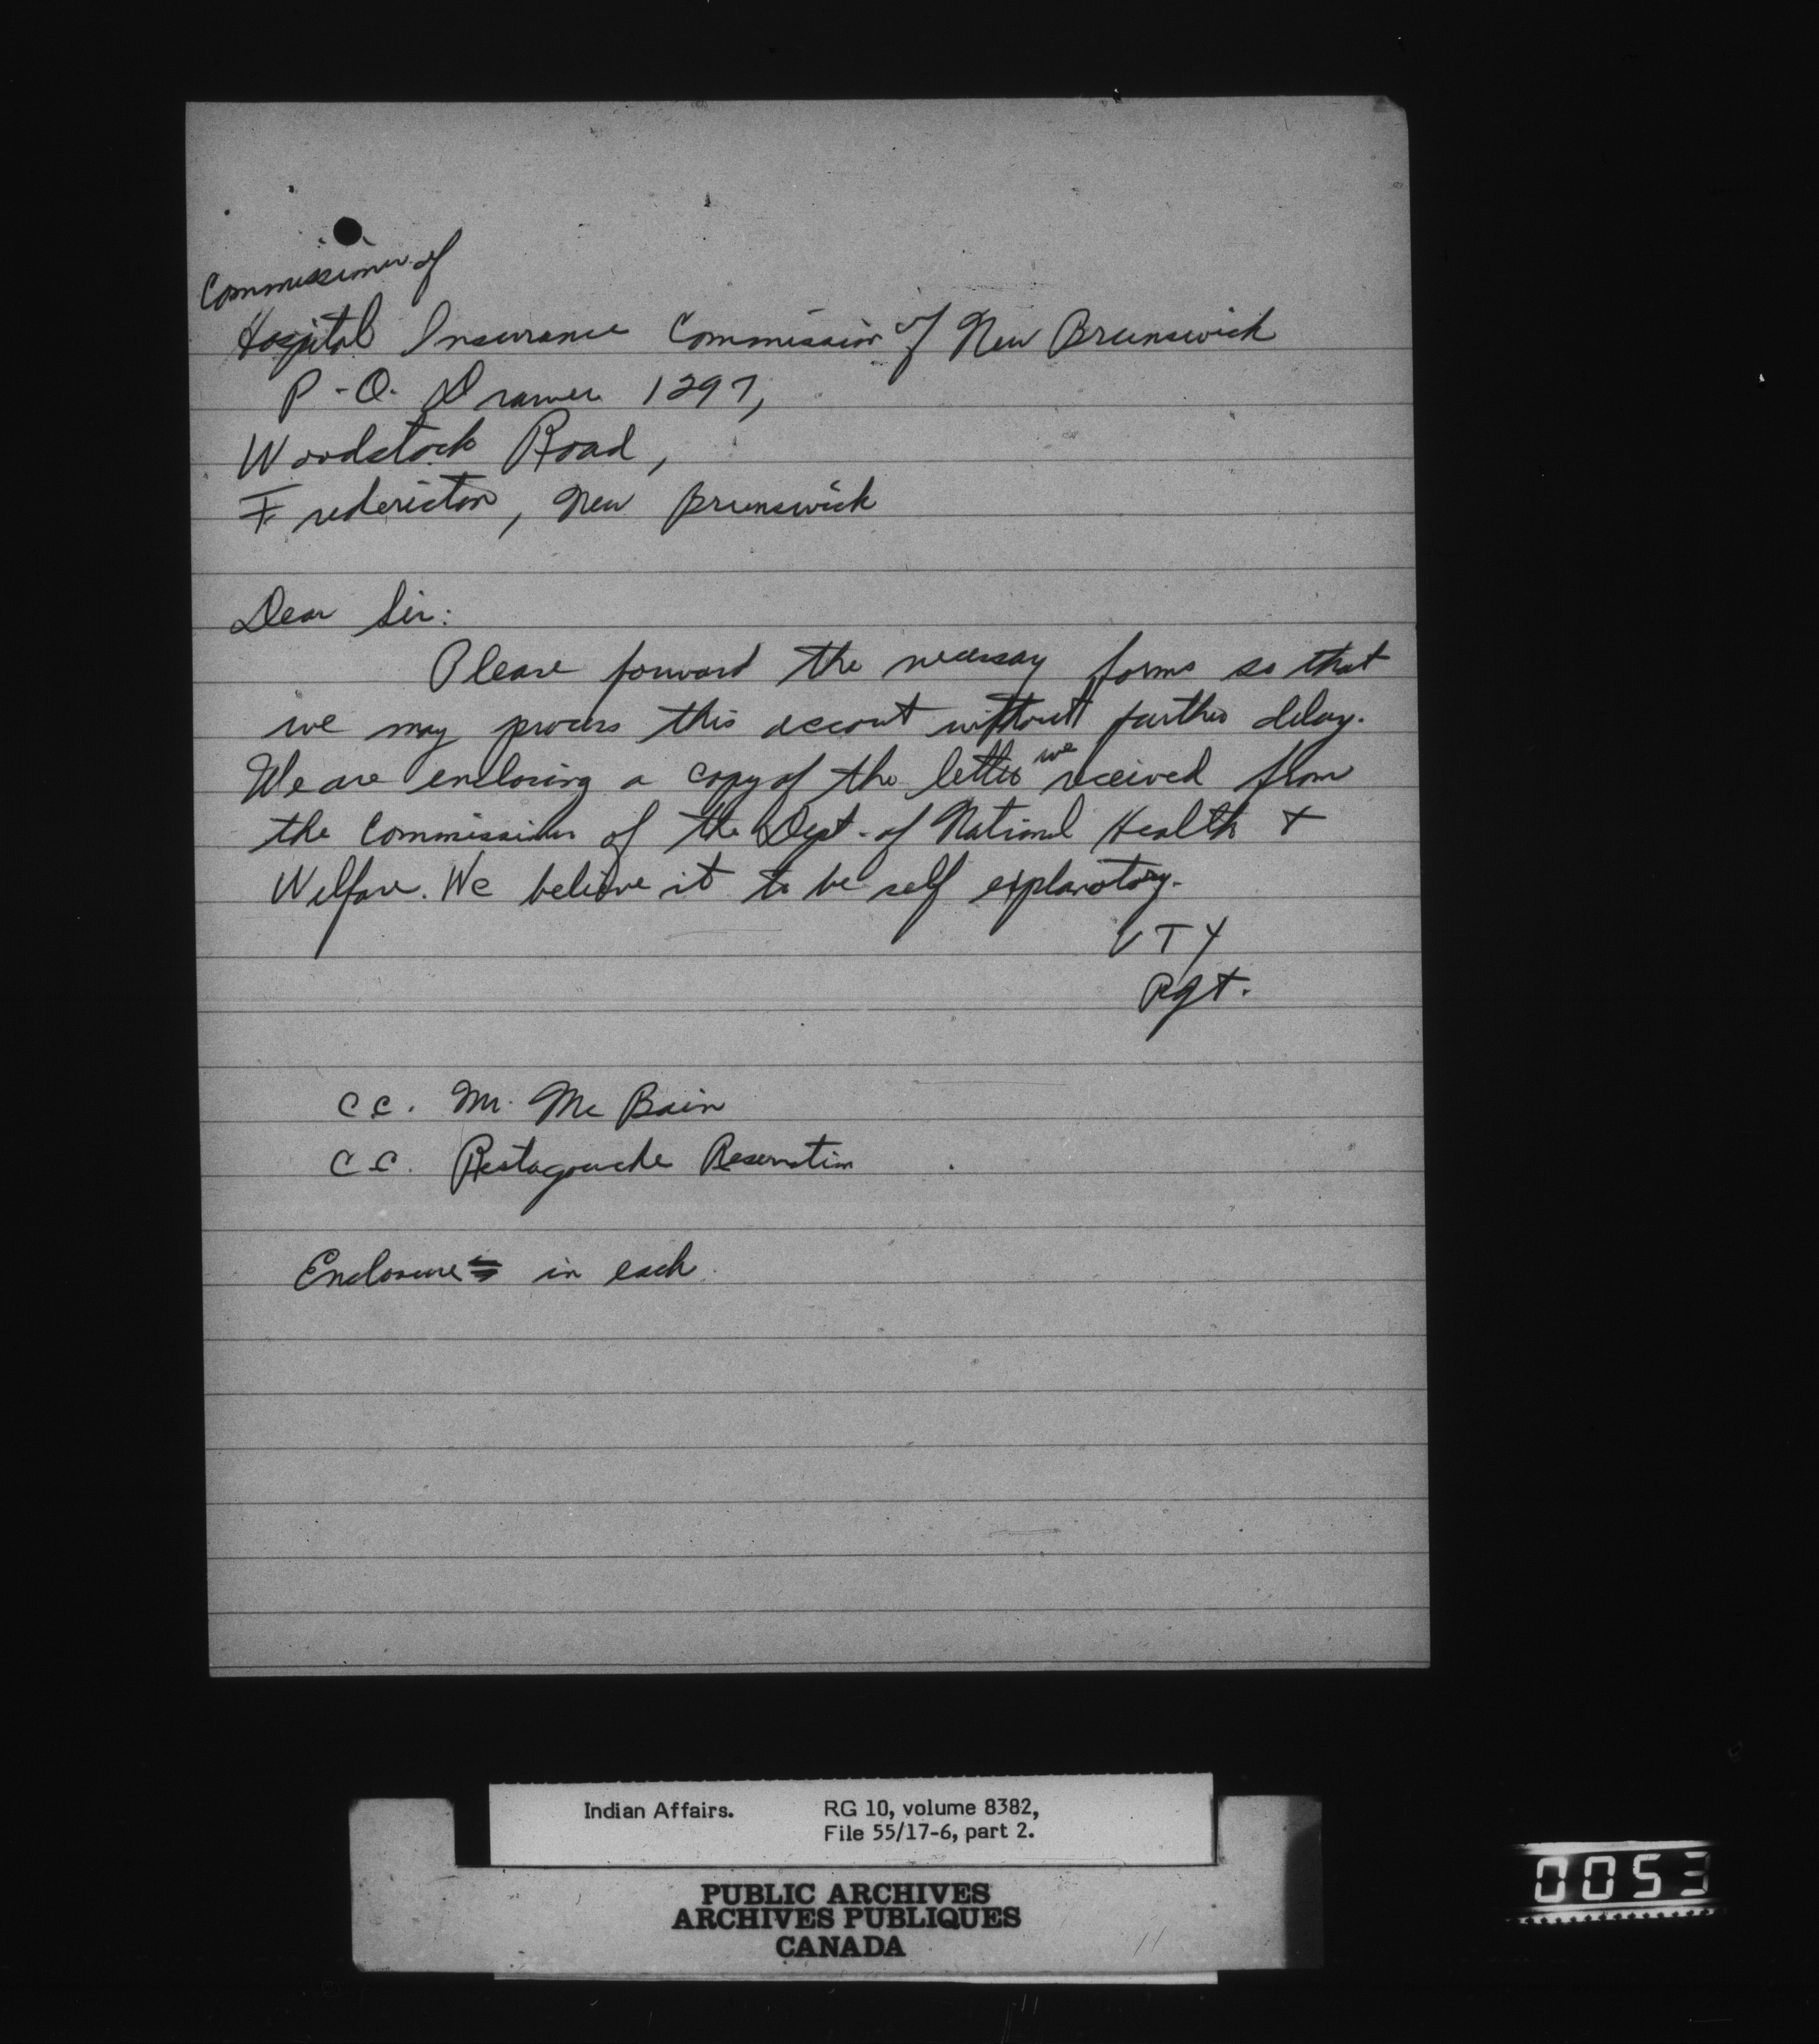 Commissioner of
Hospital Insurance Commission of New Brunswick
P-O. Drawer 1297,
Woodstock Road,
Fredericton, New Brunswick
Dear Sir:
Please forward the necessay forms so that
we may process this accout without further delay.
We are enclosing a copy of the letter we received from
the Commissioner of the Dept. of National Health +
Welfare. We believe it to be self explanatory.
VTY
Agt.
CC. Mr. Mc Bain
CC. Restagouche Reservation
Enclosure in each
Indian Affairs. RG 10, volume 8382,
File 55/17-6, part 2.
PUBLIC ARCHIVES
ARCHIVES PUBLIQUES
CANADA
0053